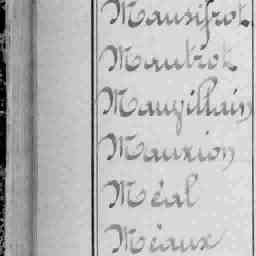 Mausifrot
Mautrot
Mauvillain
Mauxion
Méal
Méaux